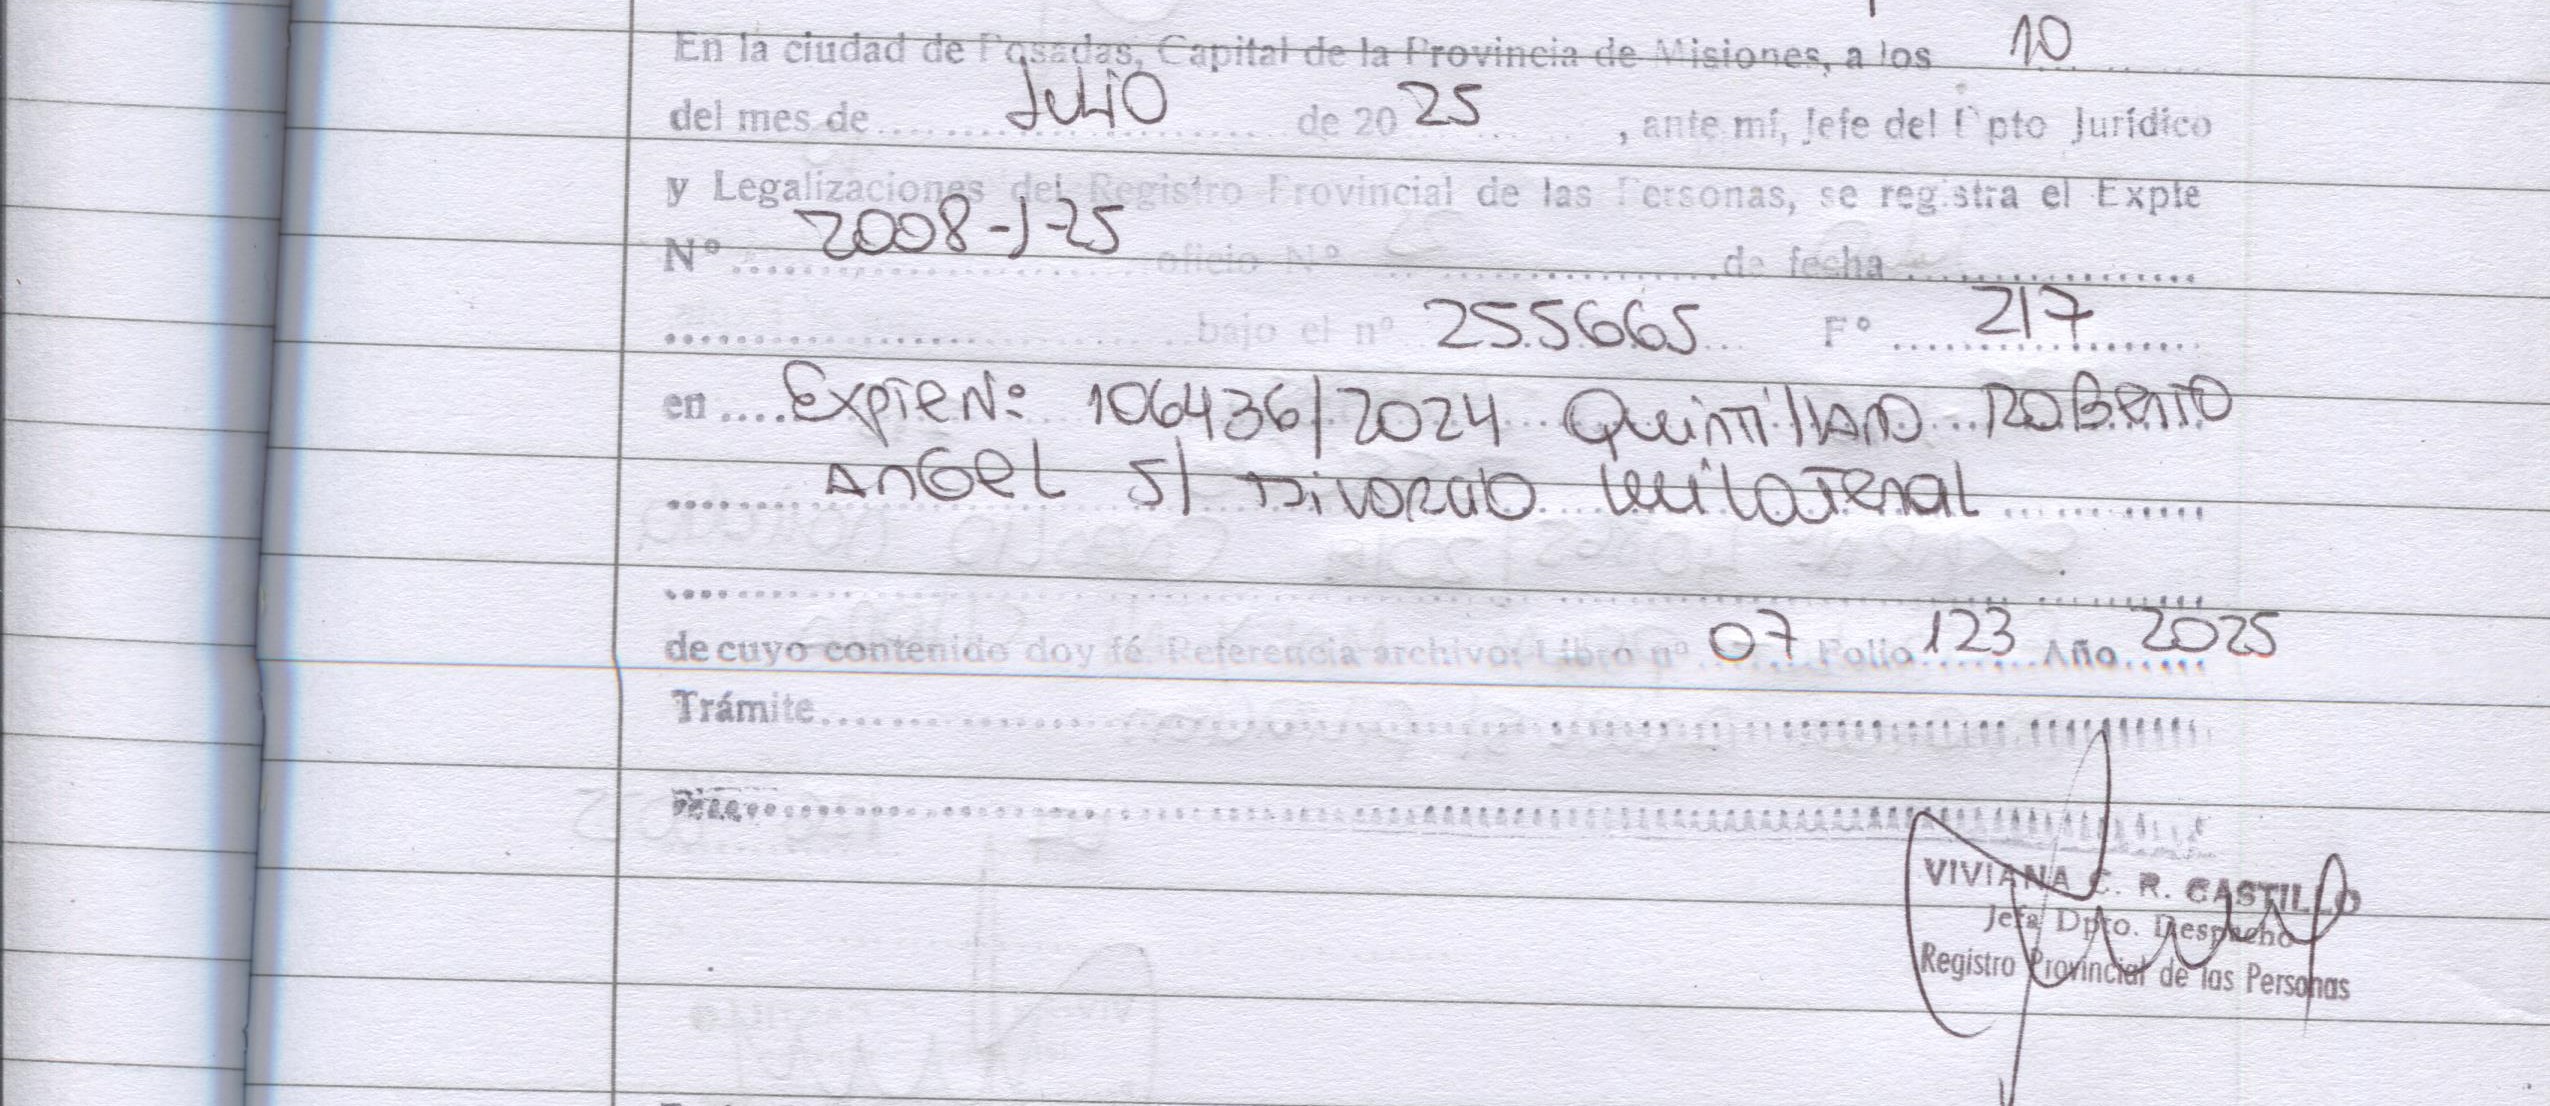 En la ciudad de Posadas, Capital de la Provincia de Misiones, a los 10
del mes de Julio de 20 25, ante mí, Jefe del Dpto Jurídico
y Legalizaciones del Registro Provincial de las Personas, se registra el Expte
Nº 2008-J-25 oficio Nº de fecha
bajo el nº 255665 Fº 217
en Expte Nº: 106436/2024 Quintillano Roberto
Angel S/ Divorcio Unilateral
de cuyo contenido doy fé. Referencia archivo: Libro nº 07 Folio 123 Año 2025
Trámite
VIVIANA C. R. CASTILLO
Jefa Dpto. Despacho
Registro Provincial de las Personas